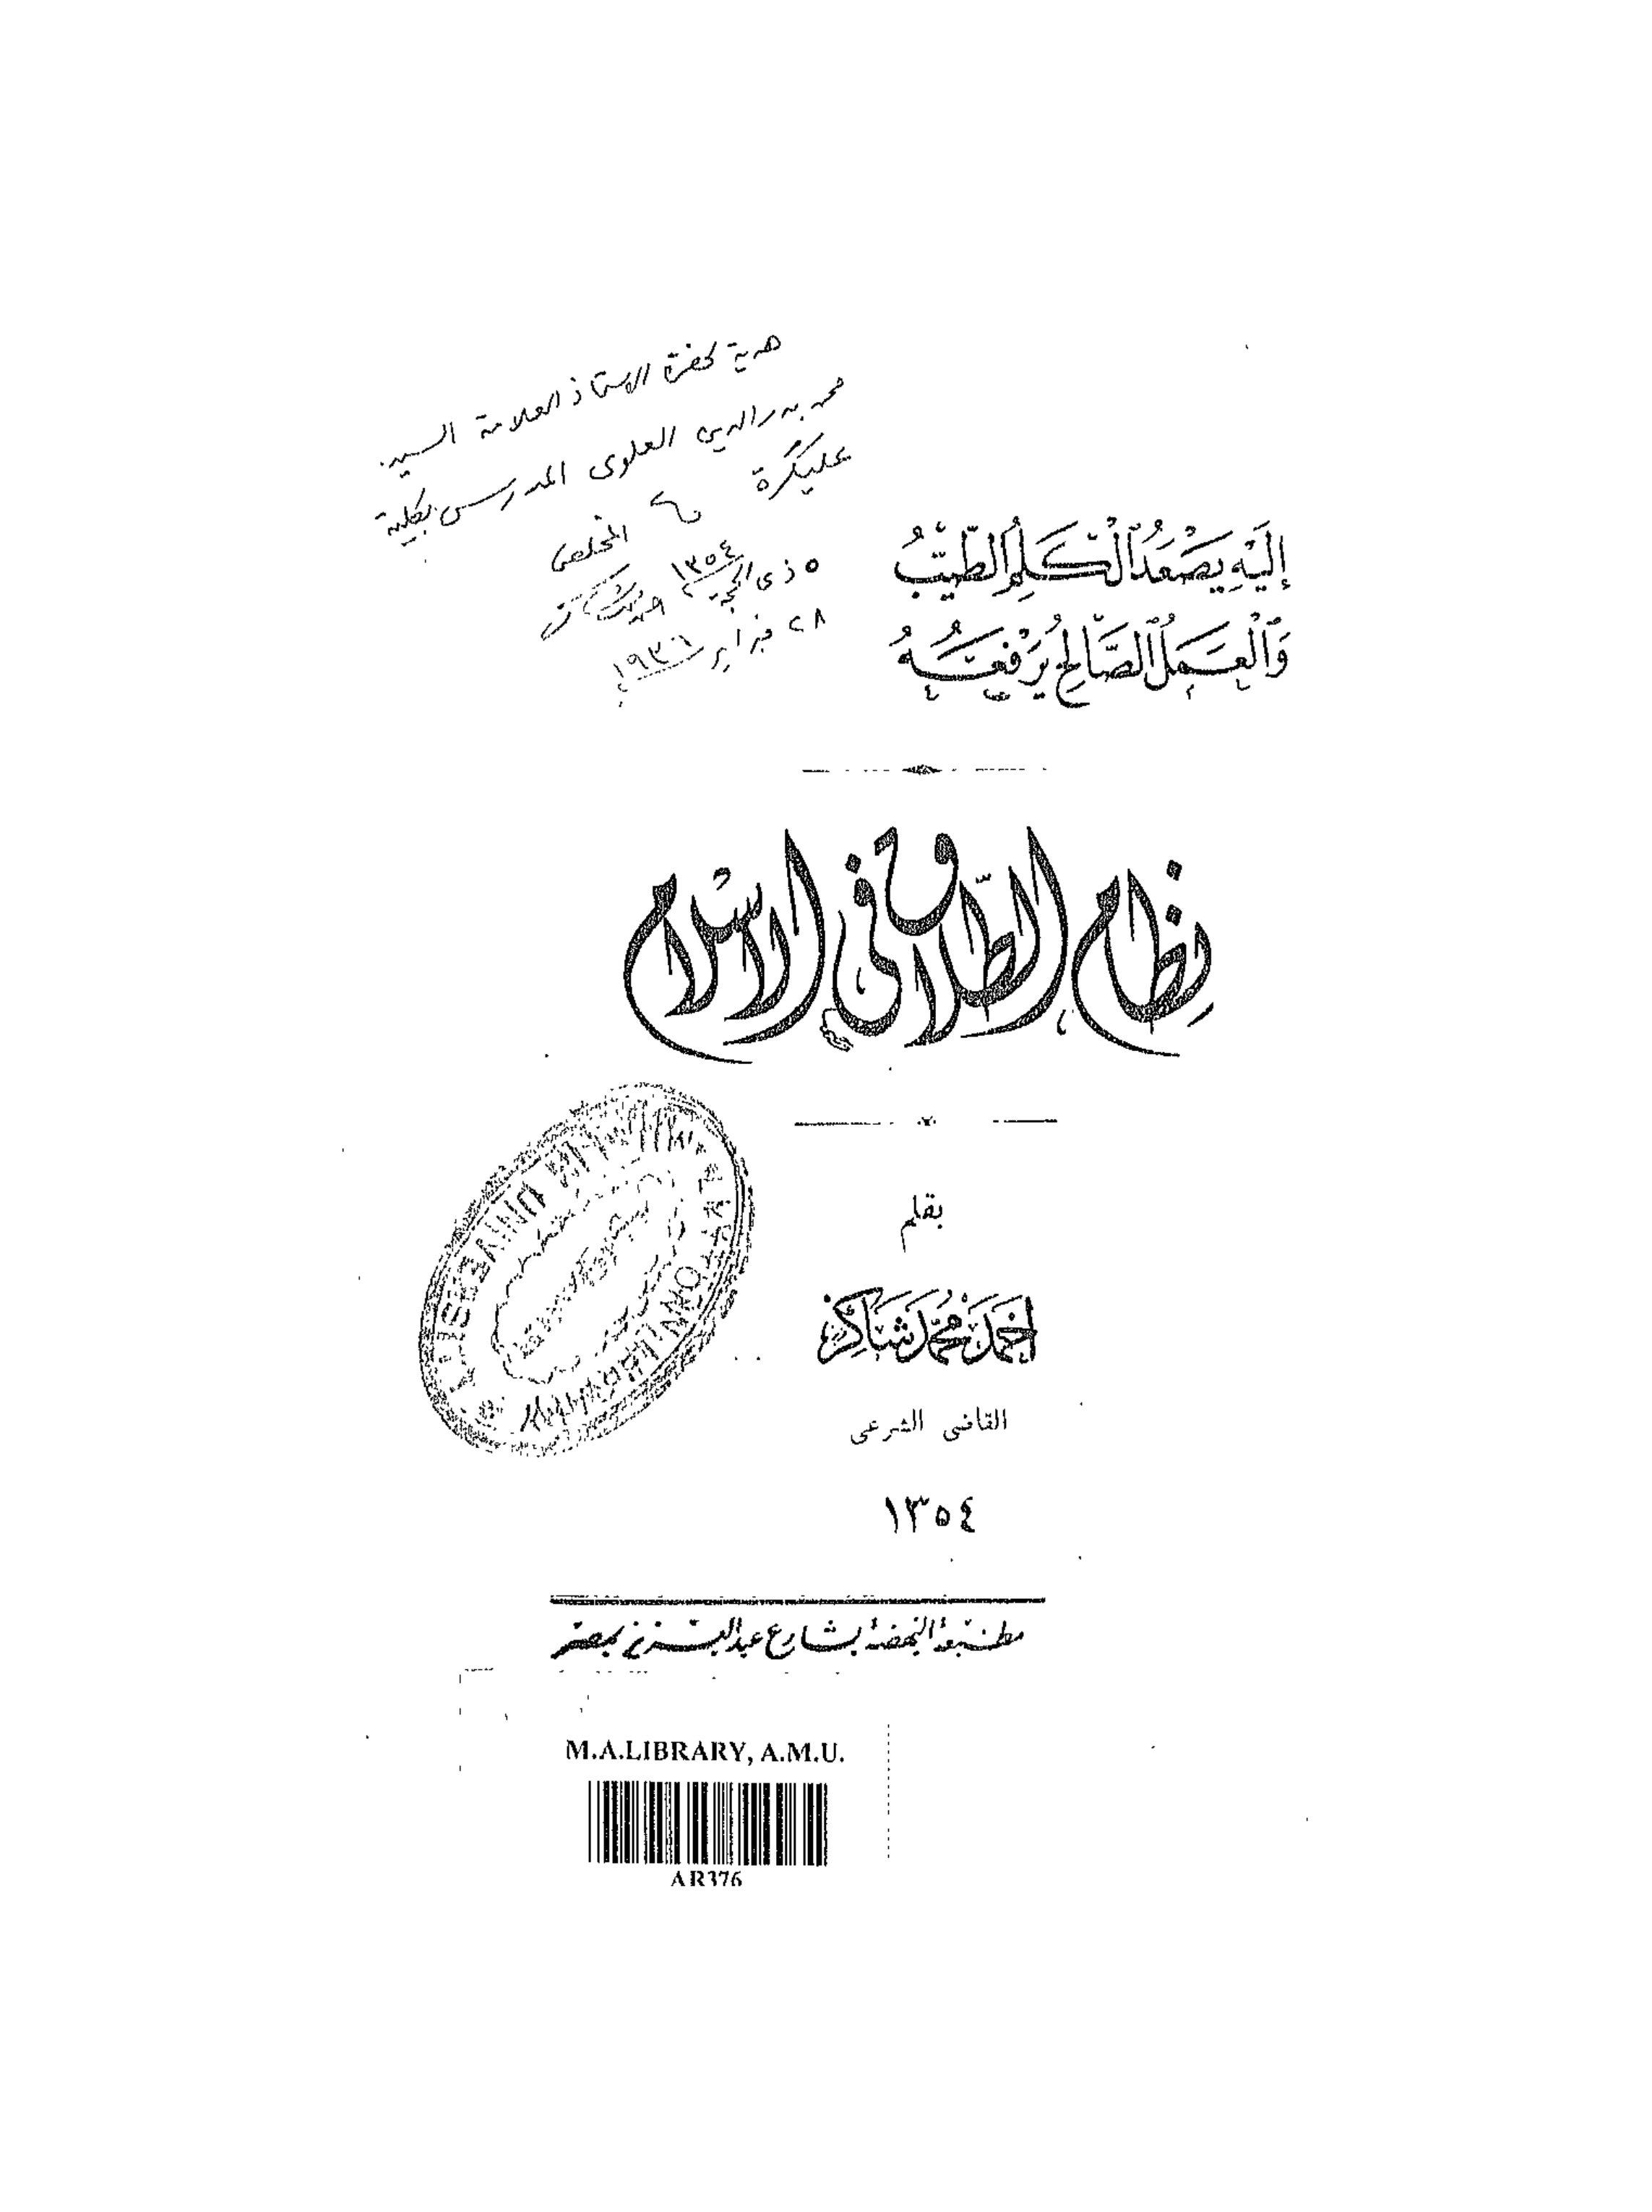 هدية لحضرة الاستاذ العلامة السيد
محمد بدر الدين العلوى المدرس بكلية
عليكرة
المخلص
احمد محمد شاكر
٥ ذى الحجة ١٣٥٤
٢٨ فبراير ١٩٣٦
إِلَيْهِ يَصْعَدُ ٱلْكَلِمُ ٱلطَّيِّبُ
وَٱلْعَمَلُ ٱلصَّالِحُ يَرْفَعُهُ
نظام الطلاق فى الاسلام
بقلم
احمد محمد شاكر
القاضى الشرعى
١٣٥٤
مطبعة النهضة بشارع عبد العزيز بمصر
M.A.LIBRARY, A.M.U.
AR376